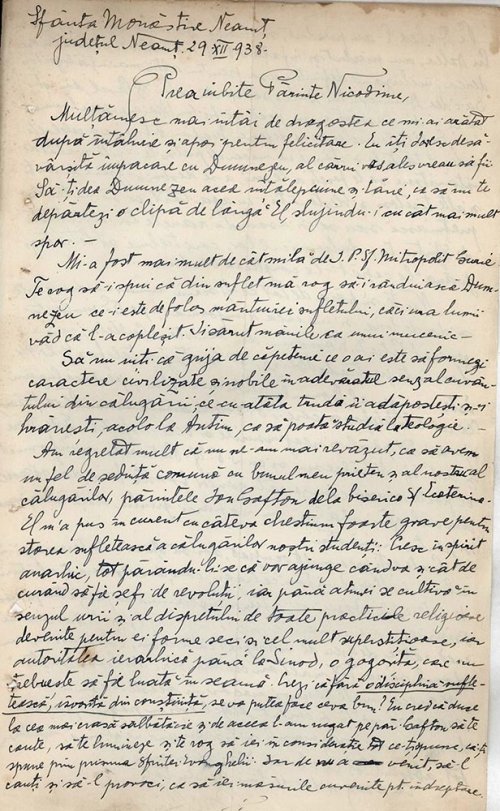 Sfânta Monăstire Neamț,
județul Neamț, 29 XII 938.
Prea iubite Părinte Nicodime,
Mulțămesc mai întâi de dragostea ce mi-ai arătat
după întâlnire și apoi pentru felicitare. Eu îți doresc desă-
vârșită împăcare cu Dumnezeu, al cărui vas ales vreau să fii.
Să-ți dea Dumnezeu acea înțălepciune și tărie, ca să nu te
depărtezi o clipă de lângă El, slujindu-i cu cât mai mult
spor. –
Mi-a fost mai mult decât milă de I. P. Sf. Mitropolit Gurie
Te rog să-i spui că din suflet mă rog să-i rânduiască Dum-
nezeu ce-i este de folos mântuirei sufletului, căci ura lumii
văd că l-a copleșit. Îi sărut mânile, ca unui mucenic –
Să nu uiți că grija de căpetenie ce o ai este să formezi
caractere civilizate și nobile în adevăratul senz al cuvân-
tului din călugării, ce cu atâta trudă îi adăpostești și-i
hrănești acolo la Antim, ca să poată studia la teologie. –
Am regretat mult că nu ne-am mai revăzut, ca să avem
un fel de ședință comună cu bunul meu prieten și al nostru al
călugărilor, părintele Ion Gafton dela biserica Sf Ecaterina.
El m'a pus în curent cu câteva chestiuni foarte grave pentru
starea sufletească a călugărilor noștri studenți: Cresc în spirit
anarhic, tot părându-li-se că vor ajunge cândva și cât de
curând să fie șefi de revoluții, iar până atunci se cultivă în
senzul urii și al disprețului de toate practicele religioase
devenite pentru ei forme seci și cel mult superstițioase, iar
autoritatea ierarhică până la Sinod, o gogoriță, care nu
trebuește să fie luată în seamă. Crezi că fără o disciplină sufle-
tească, isvorâtă din conștiință, se va putea face ceva bun? Eu cred că duce
la cea mai crasă sălbătăcie și de aceea l-am rugat pe păr. Gafton să te
caute, să te lumineze și te rog să iei în considerație tot ce-ți spune, că-ți
spune prin prisma Sfintei Evanghelii. Iar de nu a venit, să-l
cauți și să-l provoci, ca să iei măsurile cuvenite pt. îndreptare.